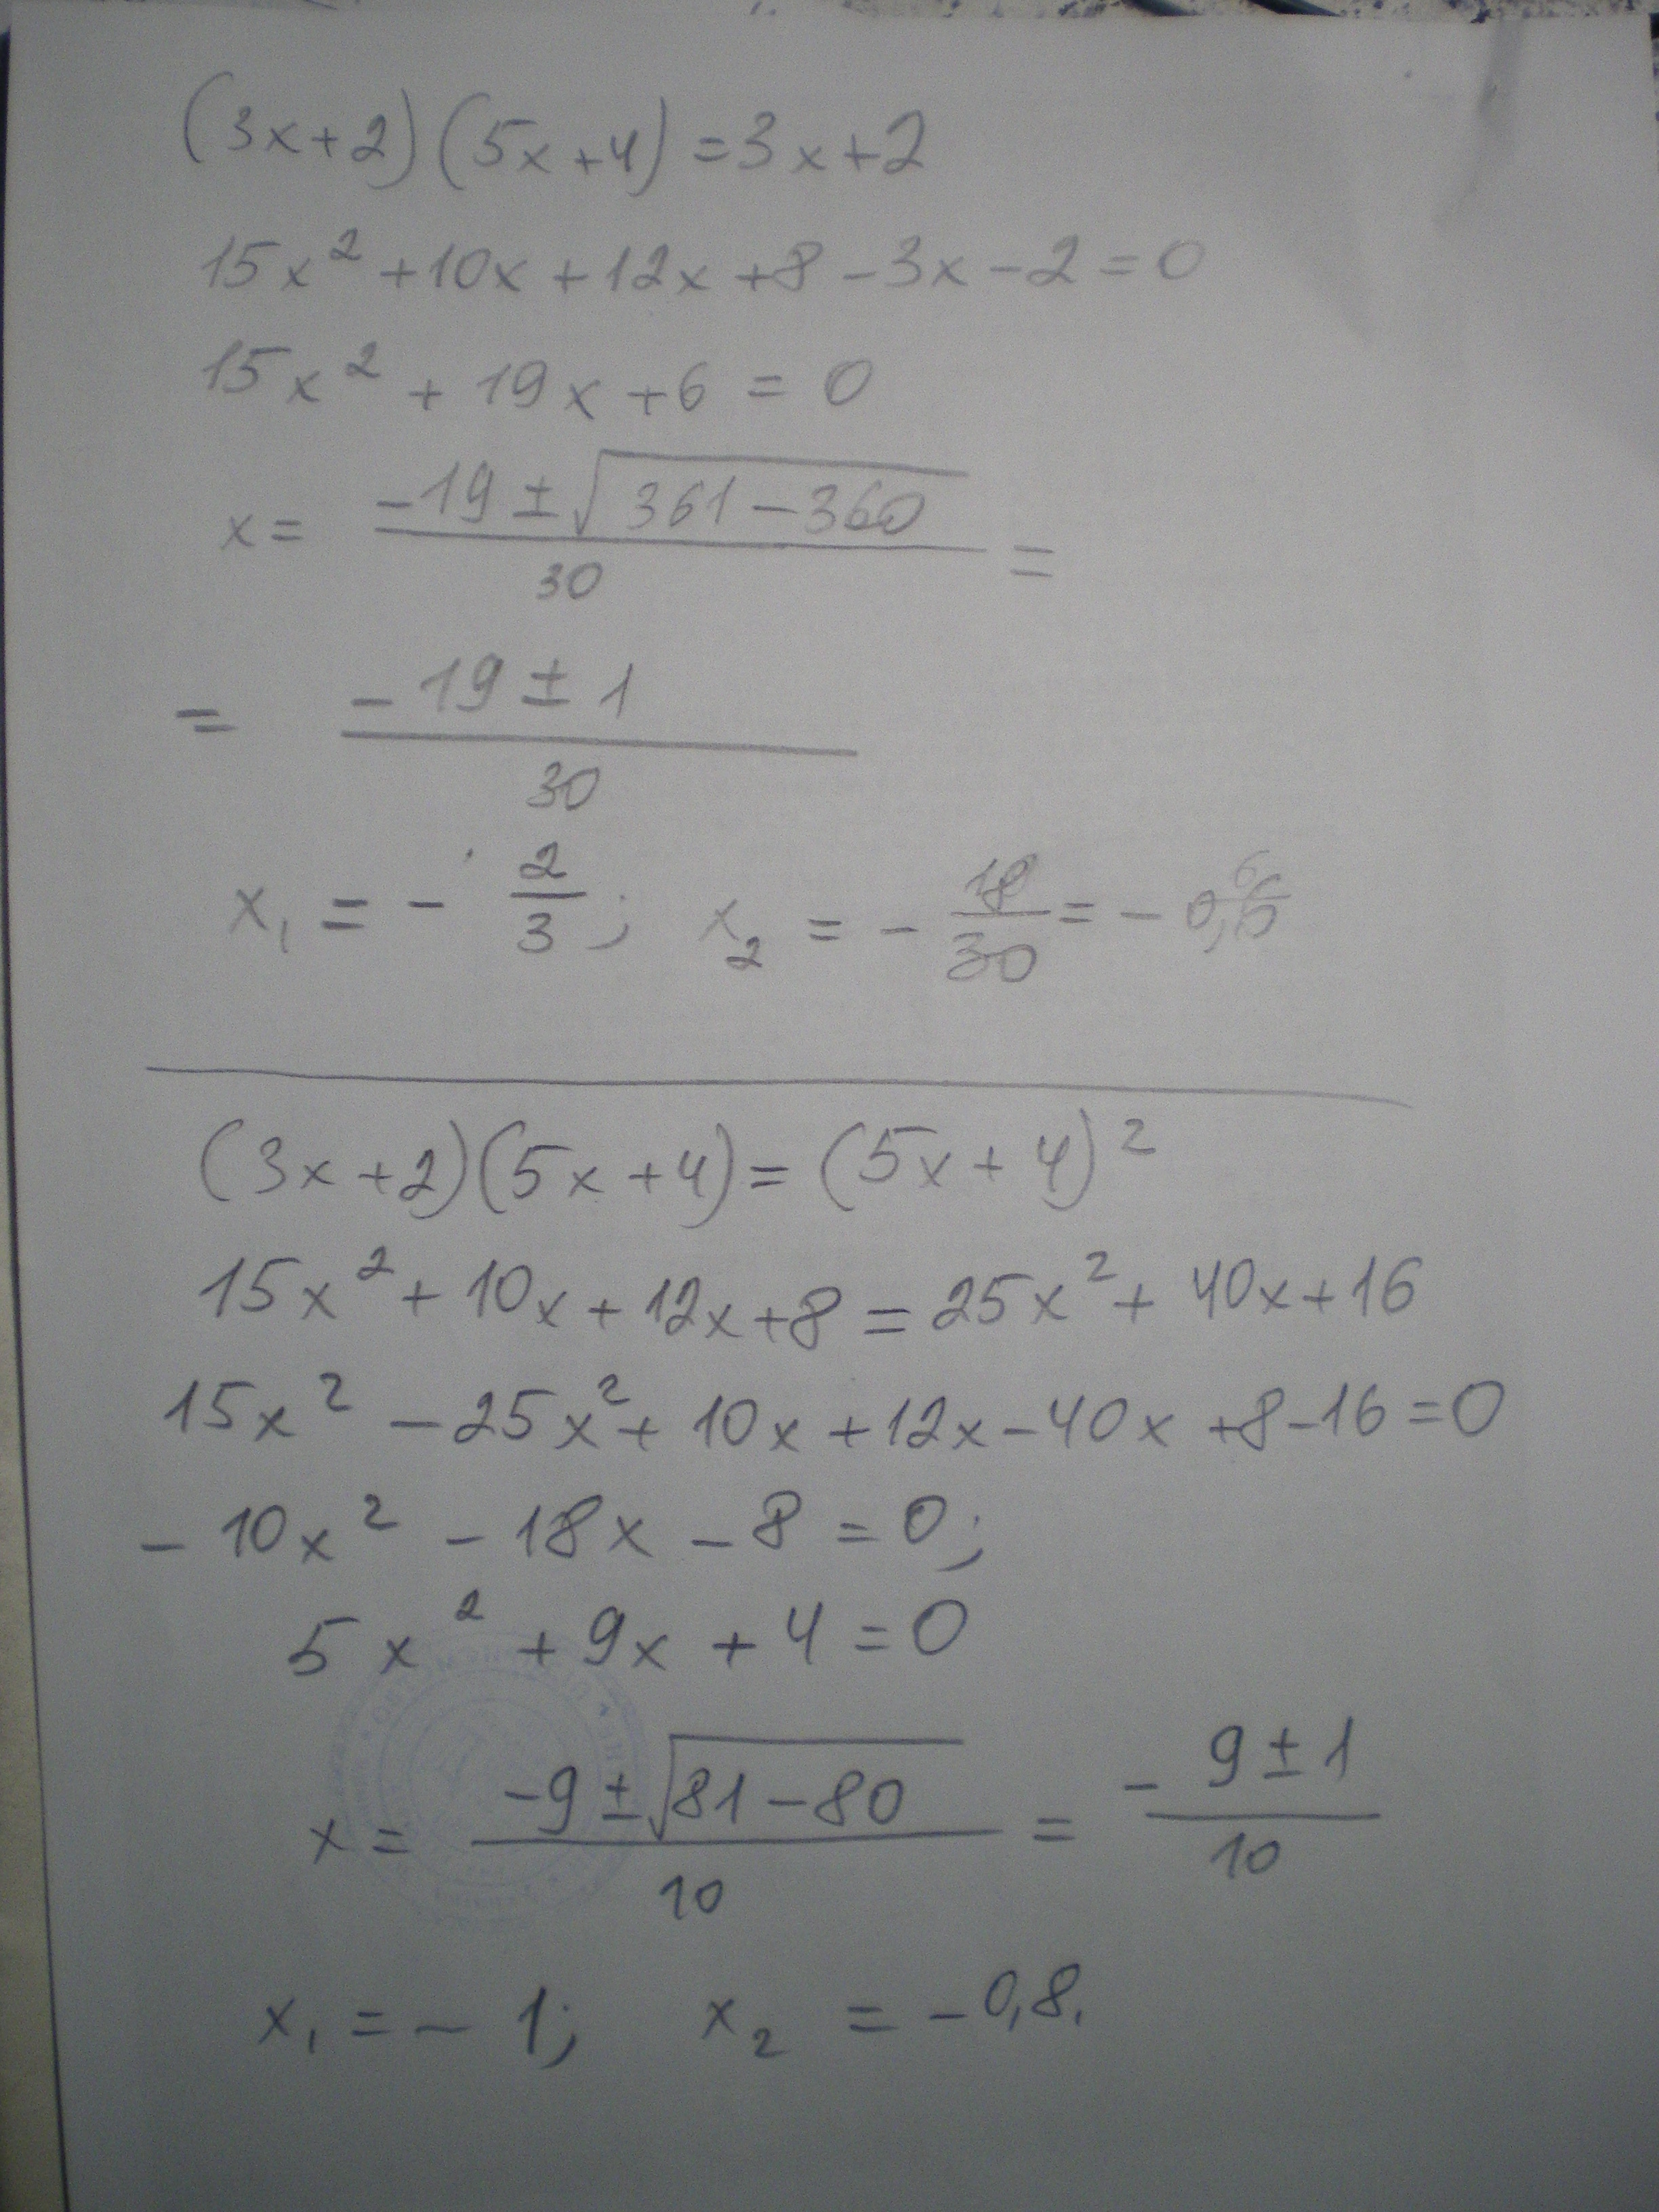 (3x+2)(5x+4)=3x+2
15x²+10x+12x+8-3x-2=0
15x²+19x+6=0
x= (-19±√(361-360))/30 =
= (-19±1)/30
x₁=-2/3; x₂=-18/30=-0,6
(3x+2)(5x+4)=(5x+4)²
15x²+10x+12x+8=25x²+40x+16
15x²-25x²+10x+12x-40x+8-16=0
-10x²-18x-8=0;
5x²+9x+4=0
x= (-9±√(81-80))/10 = (-9±1)/10
x₁=-1; x₂=-0,8.